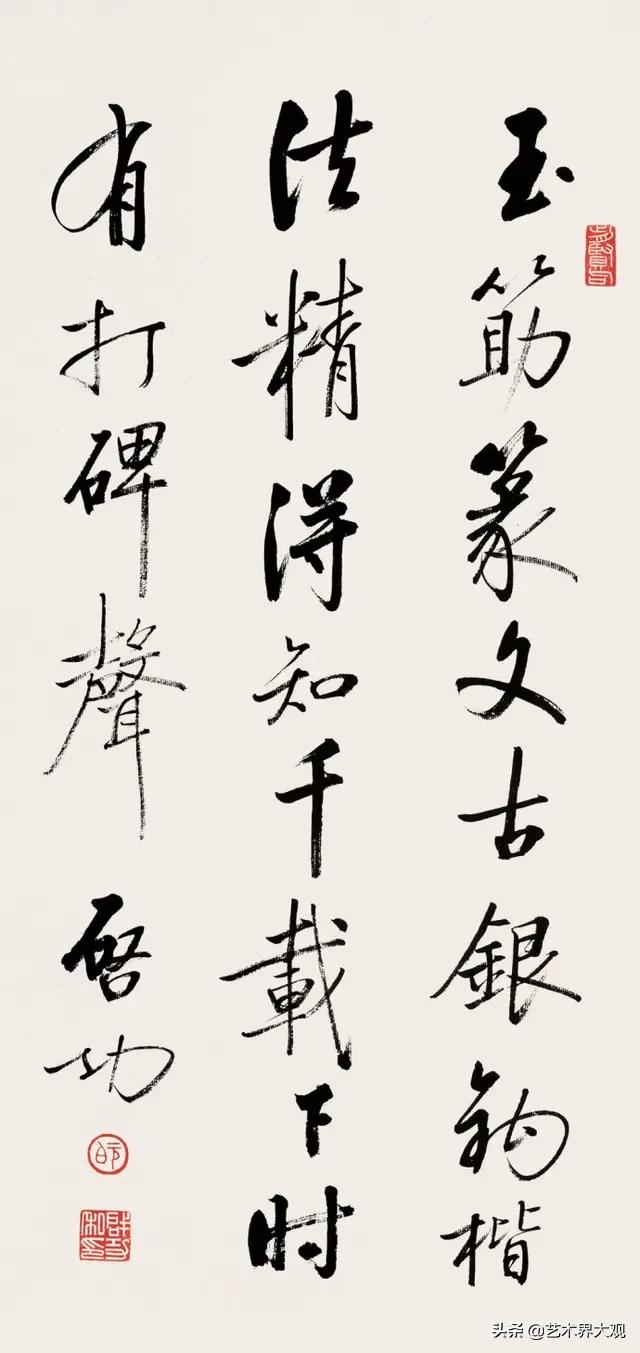 玉筯篆文古銀鈎楷
法精得知千載下时
有打碑聲
啓功
头条 @艺术界大观